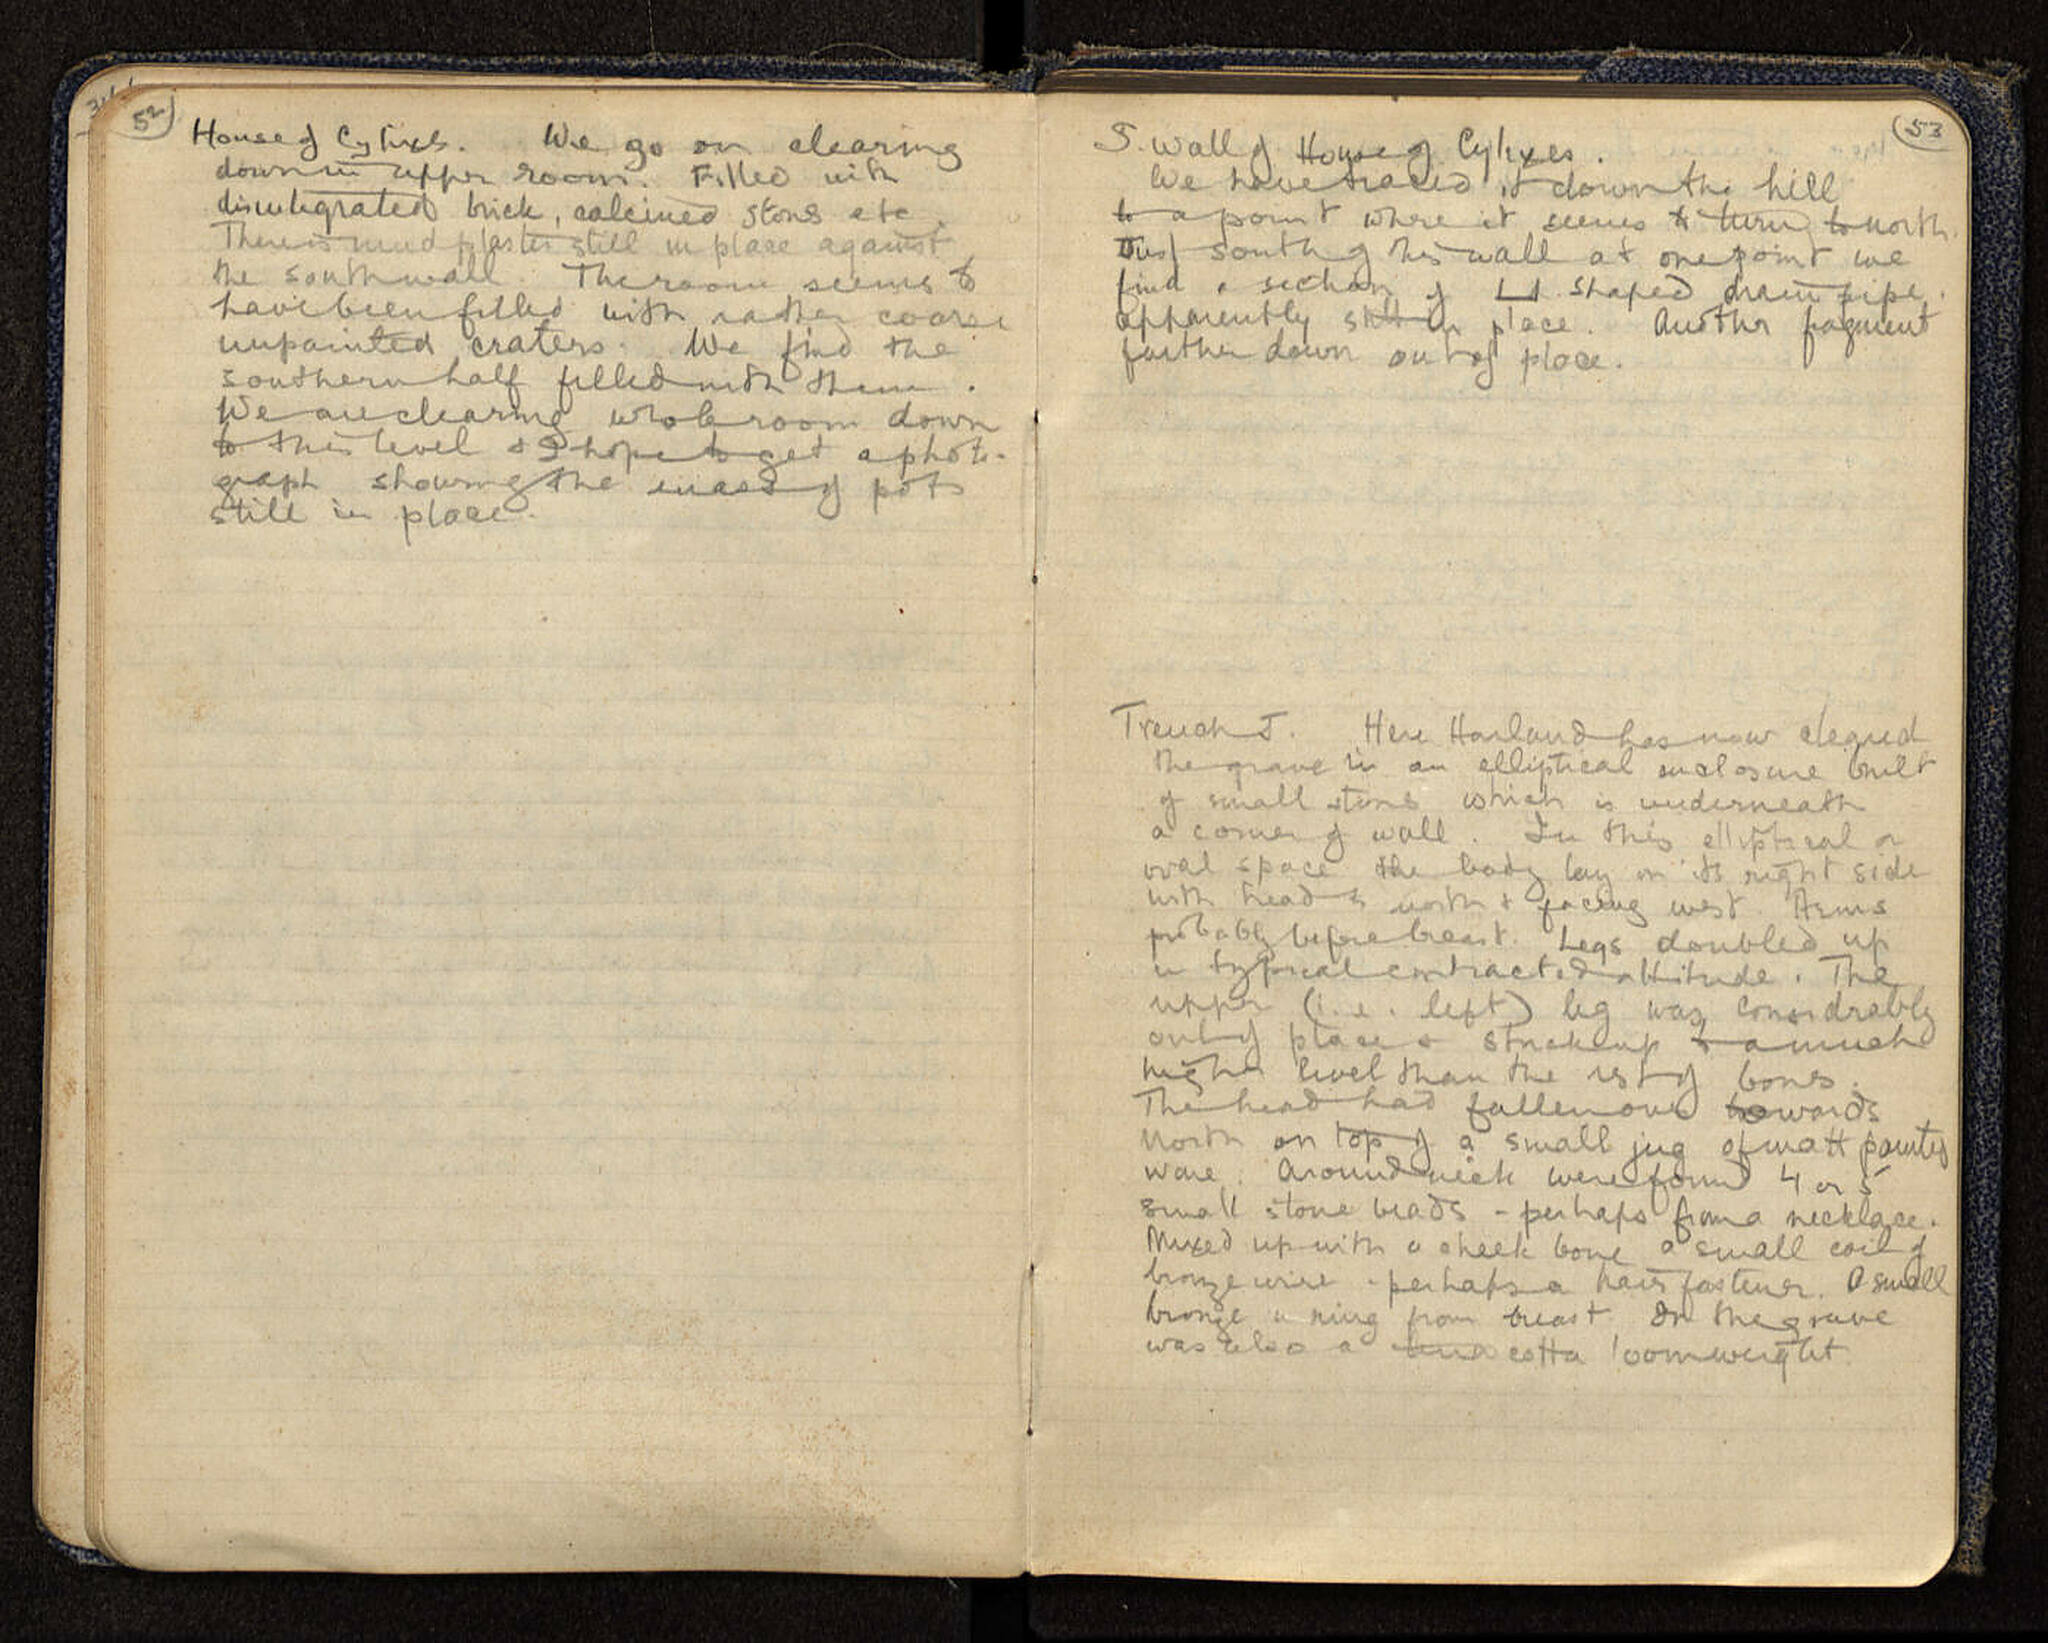 52
House of Cylixes. We go on clearing
down in upper room. Filled with
disintegrated brick, calcined stones etc.
There is mud plaster still in place against
the south wall. The room seems to
have been filled with rather coarse
unpainted craters. We find the
southern half filled with them.
We are clearing whole room down
to this level & I hope to get a photo-
graph showing the mass of pots
still in place.
53
S. wall of House of Cylixes.
We have traced it down the hill
to a point where it seems to turn to north.
Just south of this wall at one point we
find a section of shaped drain pipe,
apparently still in place. Another fragment
further down out of place.
Trench J. Here Harland has now cleared
the grave in an elliptical enclosure built
of small stones which is underneath
a corner of wall. In this elliptical or
oval space the body lay on its right side
with head to north & facing west. Arms
probably before breast. Legs doubled up
in typical contracted attitude. The
upper (i.e. left) leg was considerably
out of place & stuck up to a much
higher level than the rest of bones.
The head had fallen over towards
North on top of a small jug of matt painted
ware. Around neck were found 4 or 5
small stone beads - perhaps from a necklace.
Mixed up with a cheek bone a small coil of
bronze wire - perhaps a hair fastener. A small
bronze ring from breast. In the grave
was also a terra cotta loomweight